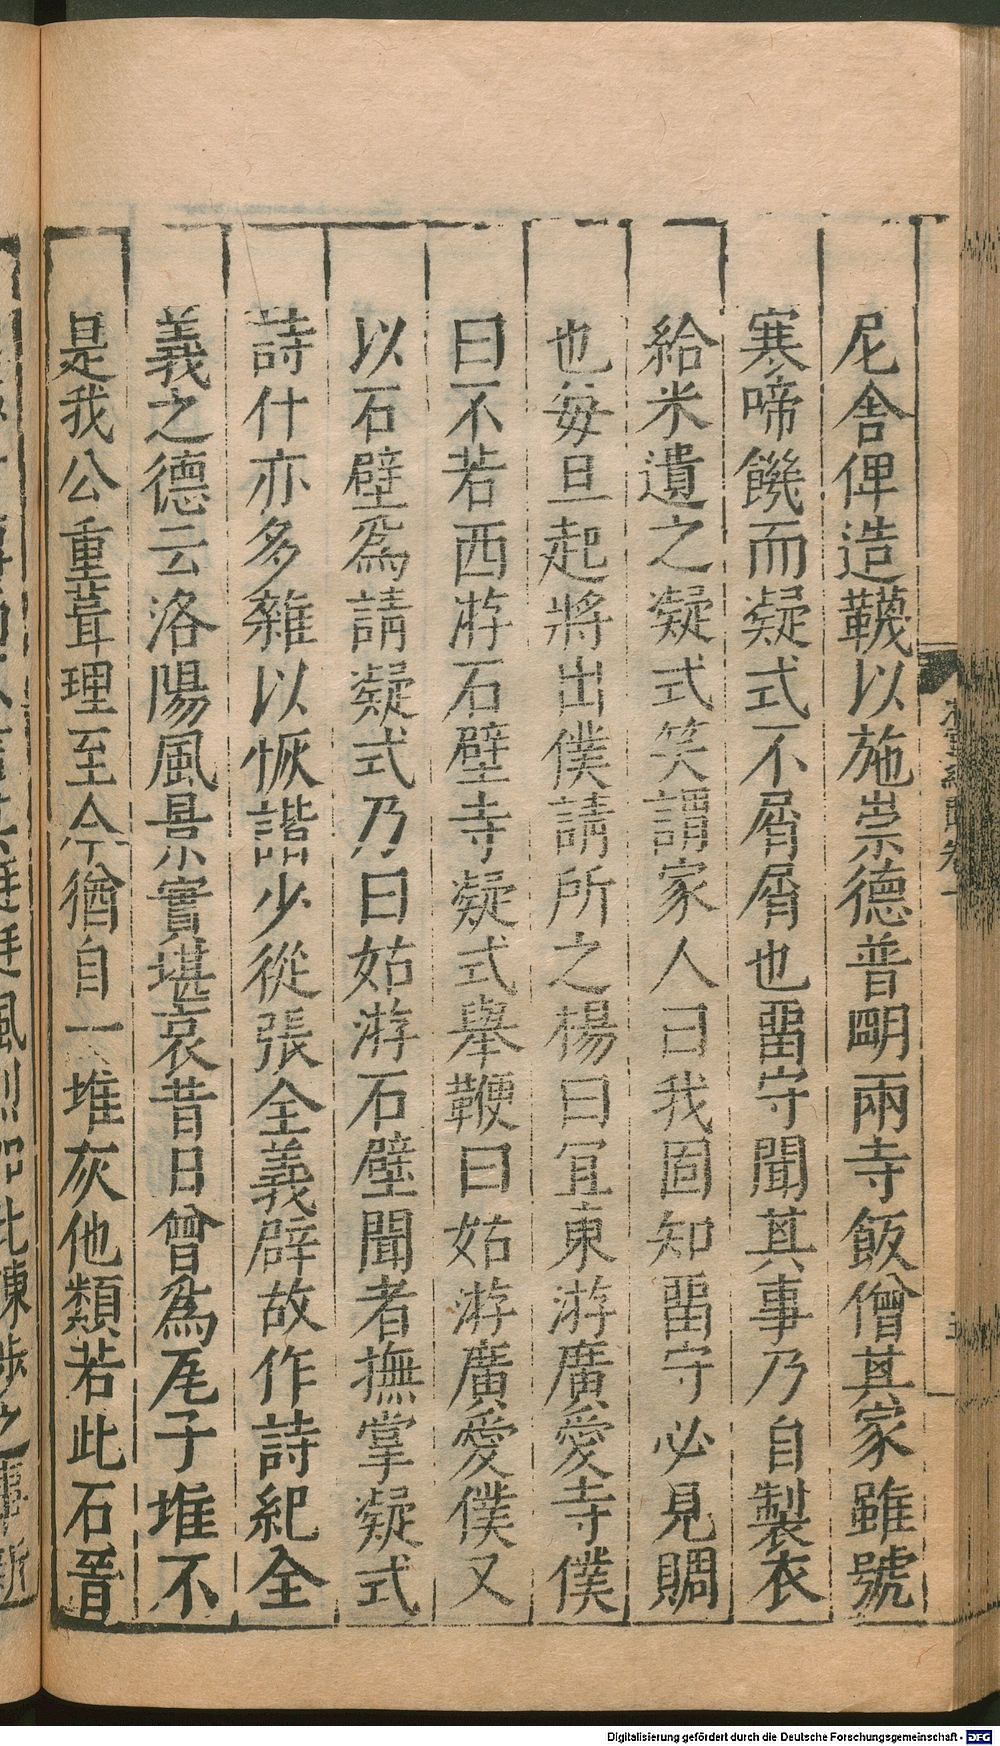 尼舍俾造韈以施崇德普明兩寺飯僧其家雖號
寒啼饑而凝式不屑屑也畱守聞其事乃自製衣
給米遺之凝式笑謂家人曰我固知畱守必見賙
也每旦起將出僕請所之楊曰宜東游廣愛寺僕
曰不若西游石壁寺凝式舉鞭曰姑游廣愛僕又
以石壁爲請凝式乃曰姑游石壁聞者撫掌凝式
詩什亦多雜以恢諧少從張全義辟故作詩紀全
義之德云洛陽風景實堪哀昔日曾爲瓦子堆不
是我公重葺理至今猶自一堆灰他類若此石晉
Digitalisierung gefördert durch die Deutsche Forschungsgemeinschaft - DFG